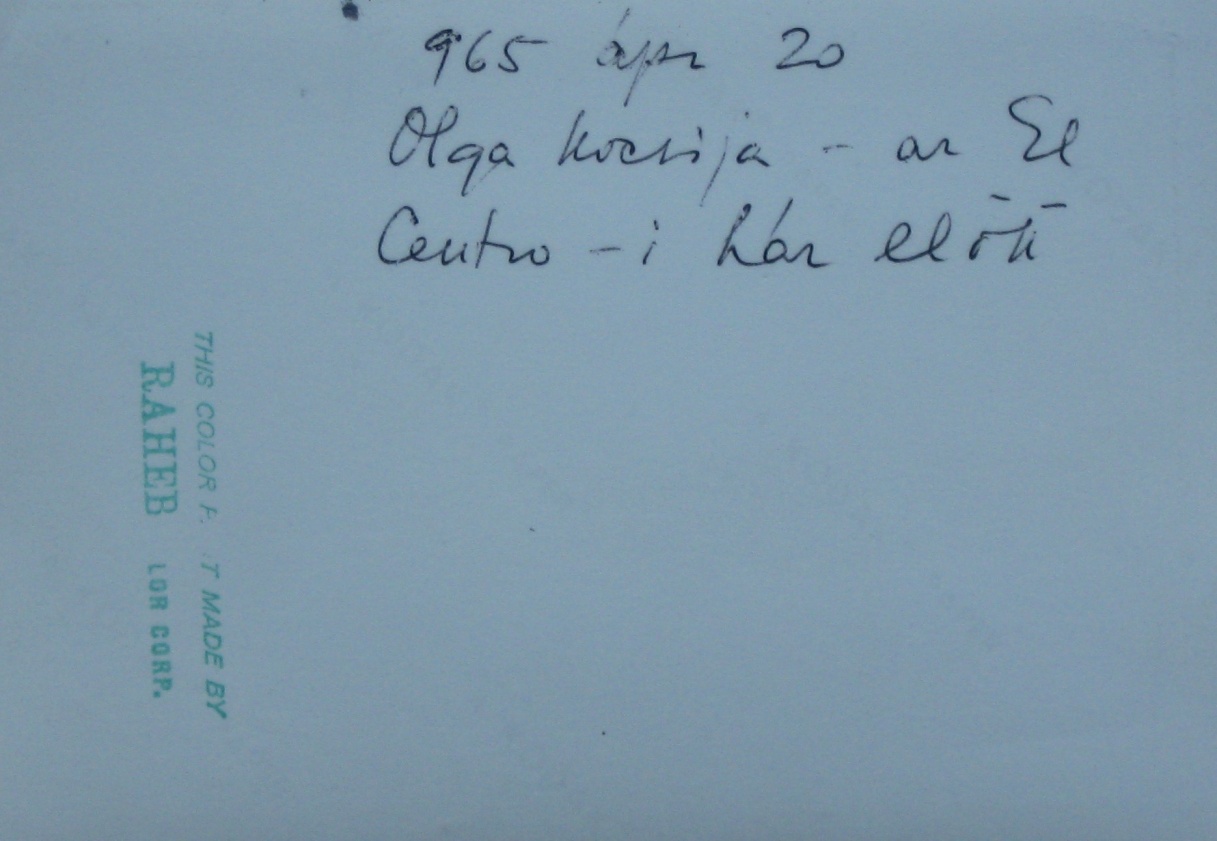 965 ápr 20
Olga kocsija - az El
Centro - i ház előtt
THIS COLOR P. .T MADE BY
RAHEB LOR CORP.